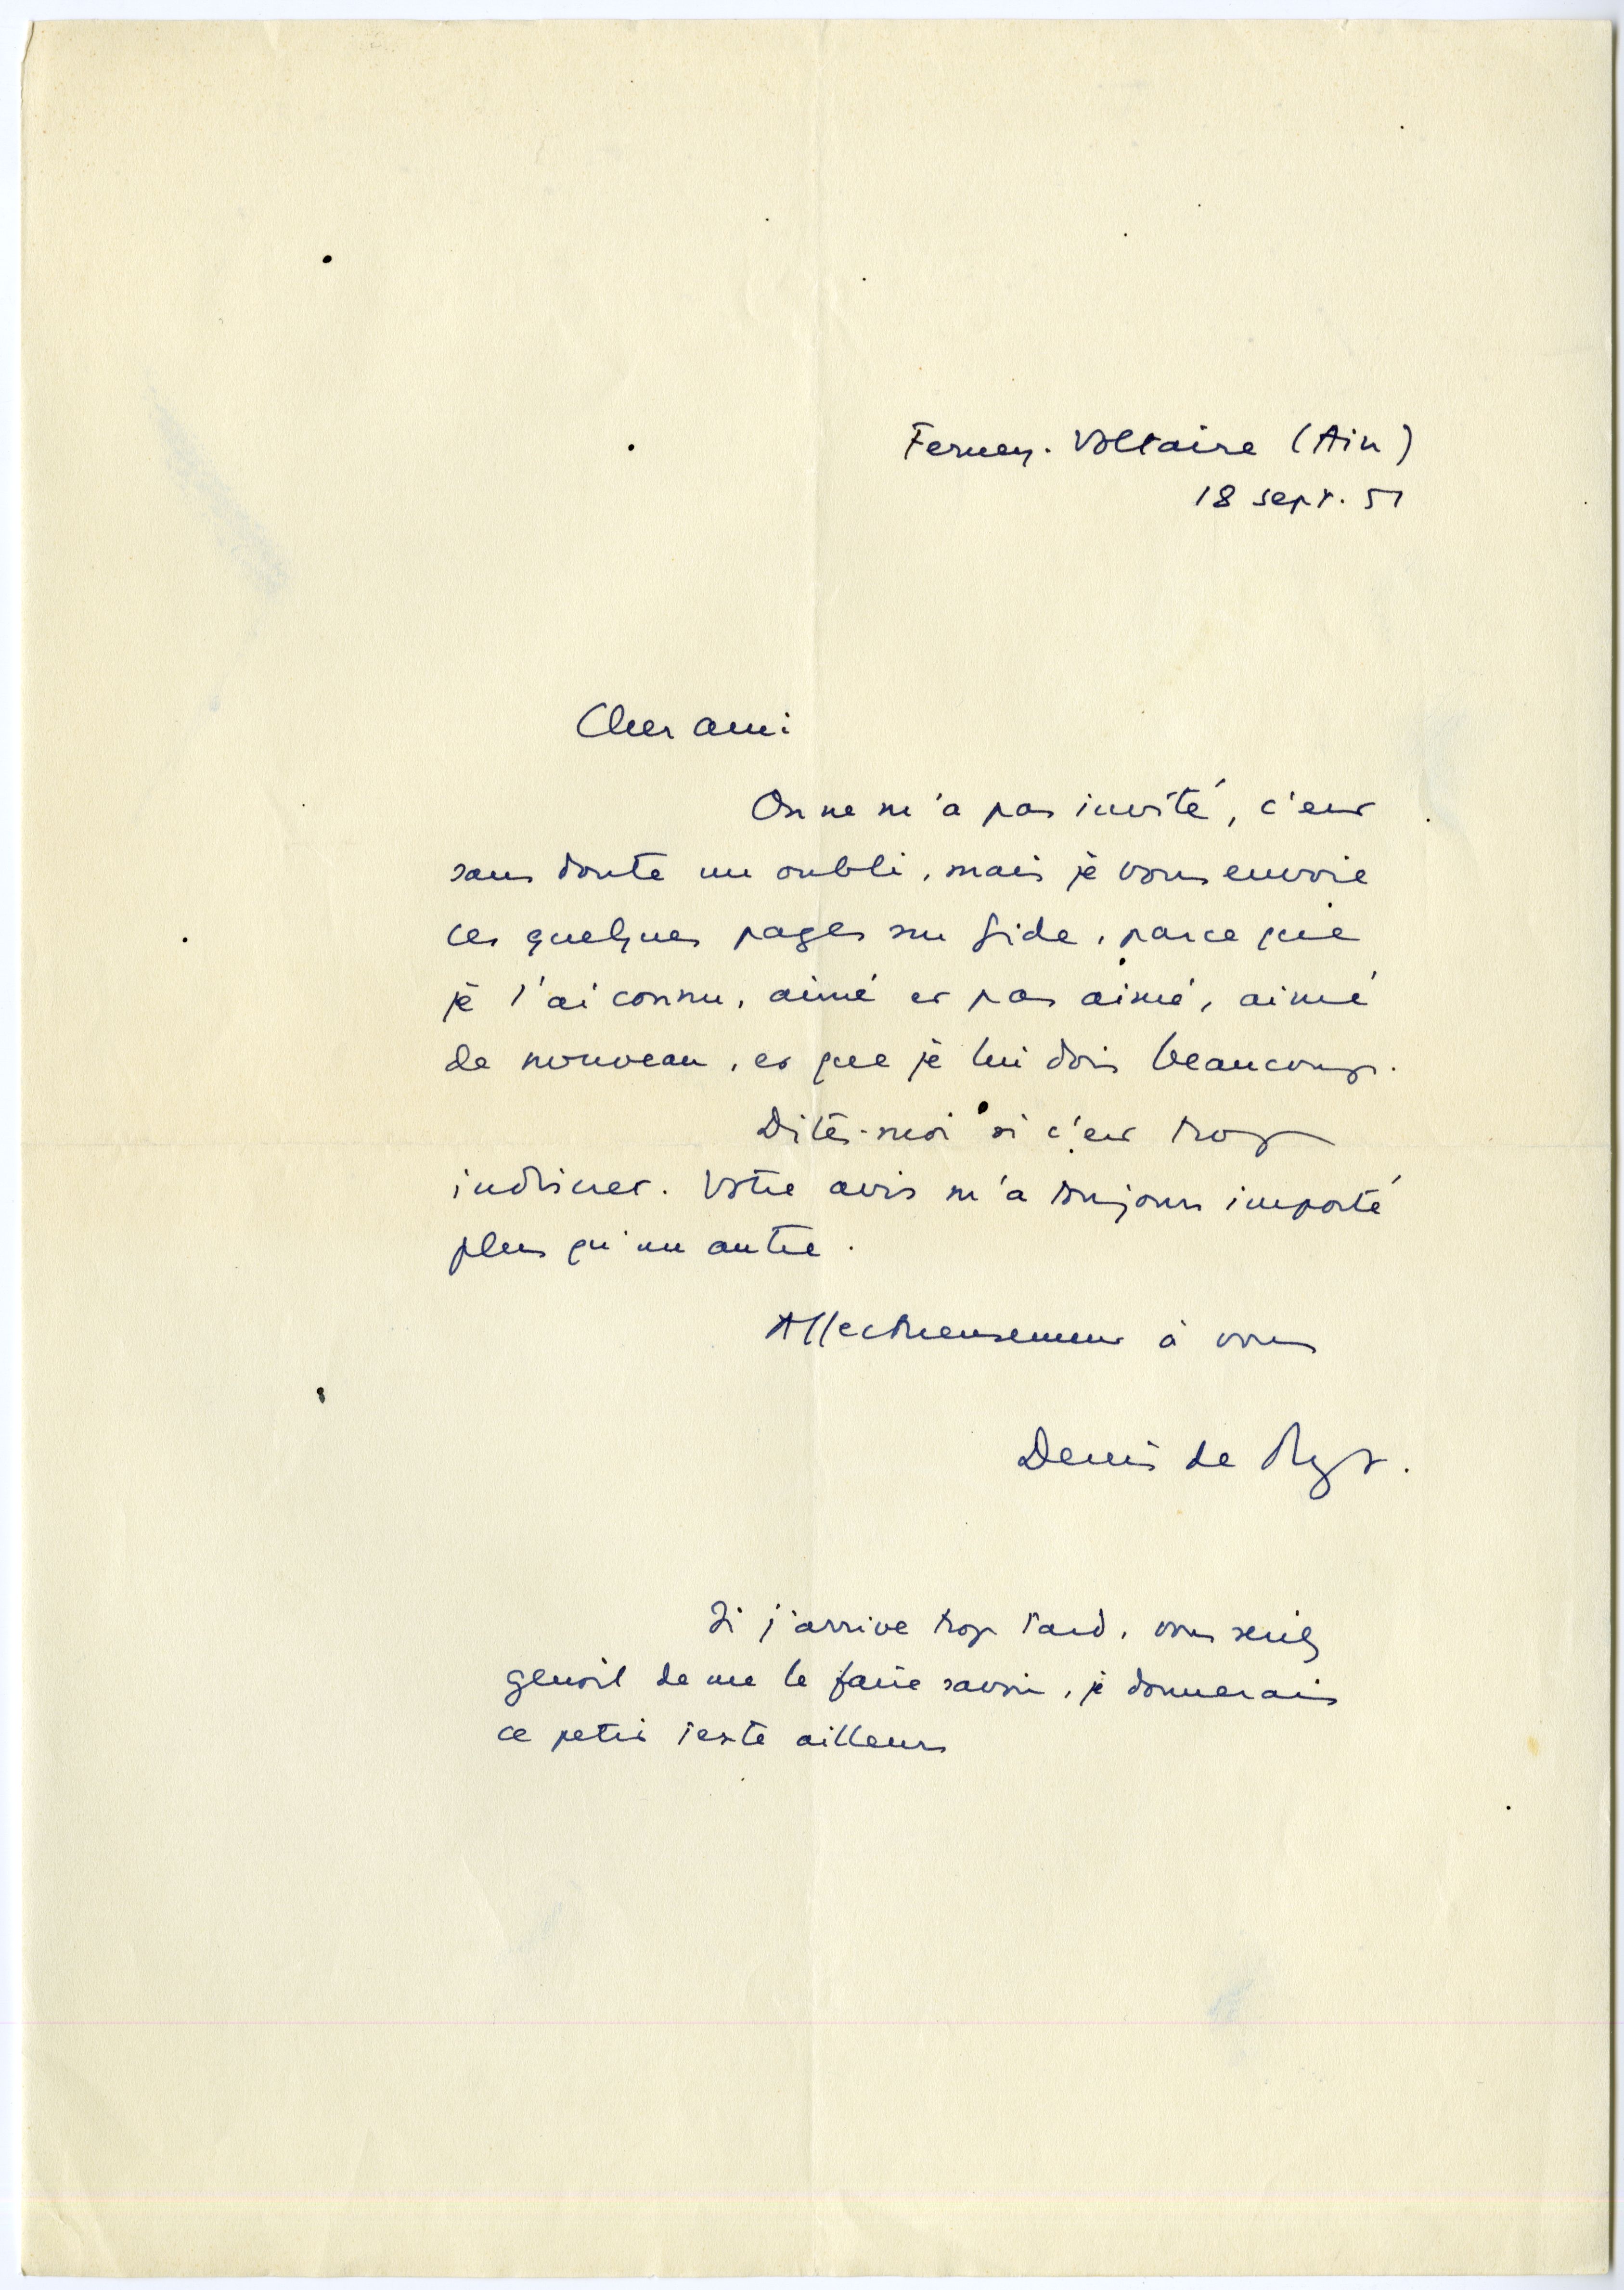 Ferney-Voltaire (Ain)
18 sept. 51
Cher ami
On ne m'a pas invité, c'est
sans doute un oubli, mais je vous envoie
ces quelques pages sur Gide, parce que
je l'ai connu, aimé et pas aimé, aimé
de nouveau, et que je lui dois beaucoup.
Dites-moi si c'est trop
indiscret. Votre avis m'a toujours importé
plus qu'un autre.
Affectueusement à vous
Denis de Rgt.
Si j'arrive trop tard, vous seriez
gentil de me le faire savoir, je donnerais
ce petit texte ailleurs